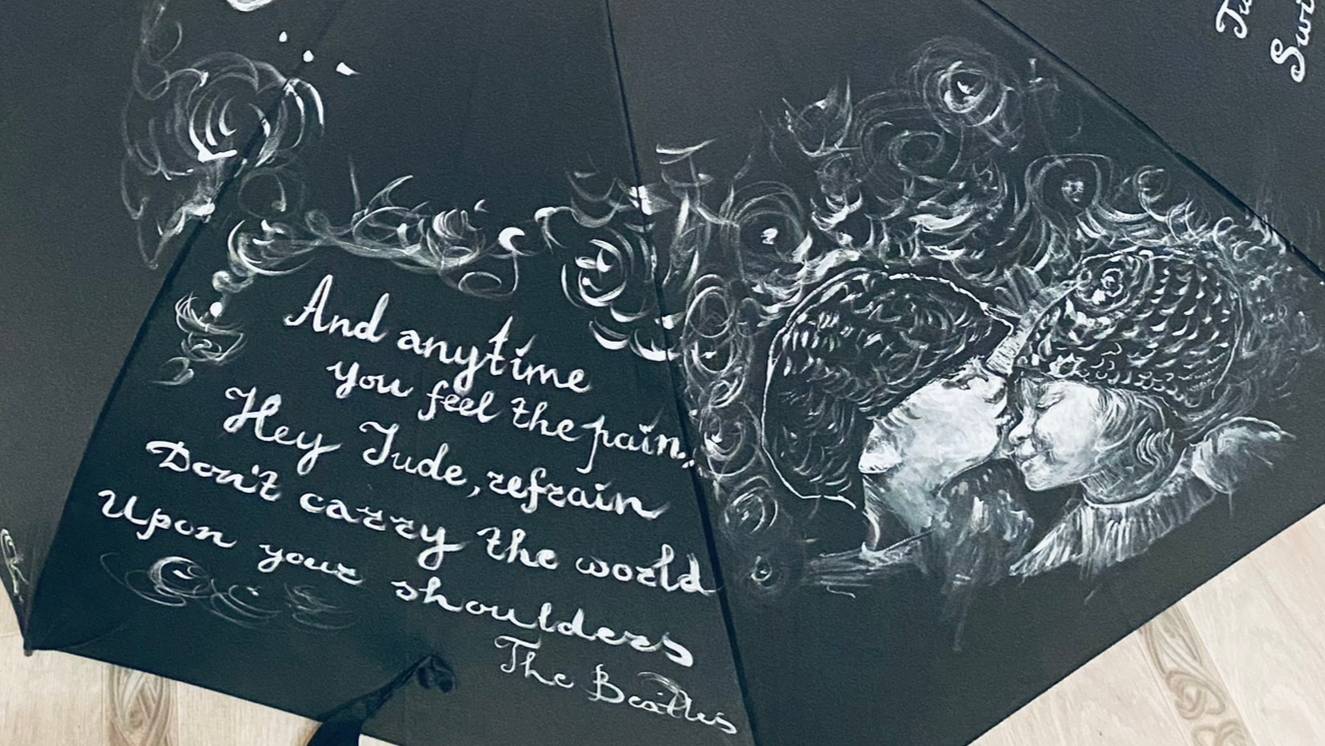 And anytime
you feel the pain,
Hey Jude, refrain
Don't carry the world
Upon your shoulders
The Beatles